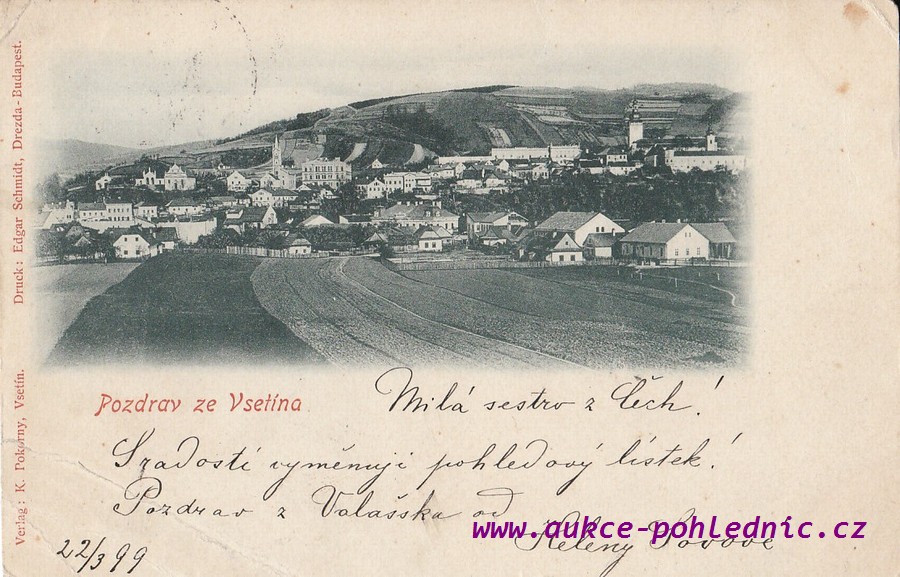 Druck: Edgar Schmidt, Drezda-Budapest.
Verlag: K. Pokorny, Vsetín.
Pozdrav ze Vsetína
Milá sestro z Čech!
S radostí vyměnuji pohledový lístek!
Pozdrav z Valašska od
Heleny
www.aukce-pohlednic.cz
22/3 99